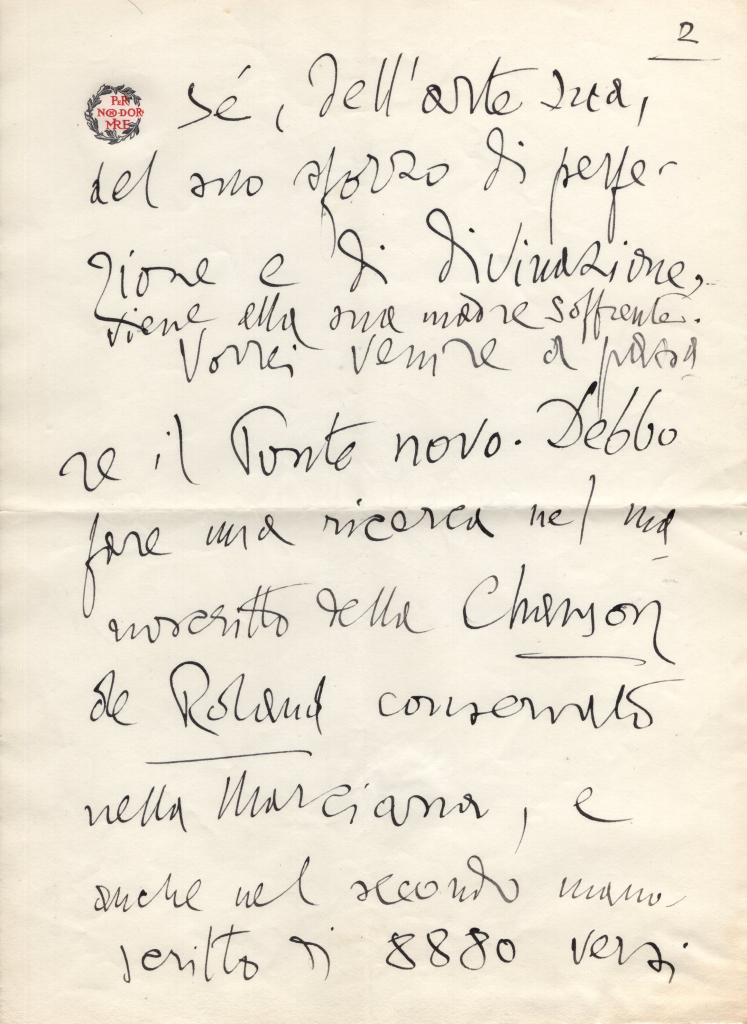 2
PER
NON DOR
MIRE
sé, dell'arte sua,
del suo sforzo di perfe-
zione e di divinazione,
viene alla sua madre soffrente.
Vorrei venire a passa
re il Ponte novo. Debbo
fare una ricerca nel ma
noscritto della Chanson
de Roland conservato
nella Marciana, e
anche nel secondo mano-
scritto di 8880 versi